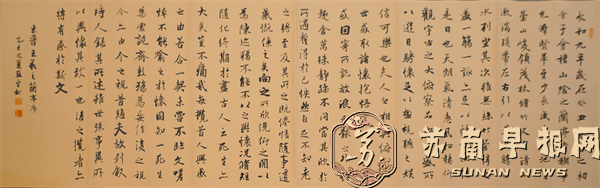 永和九年歲在癸丑 之初
會于會稽山陰之蘭亭
也羣賢畢至少長咸
崇山峻領茂林脩竹 清
激湍暎帶左右引以
水列坐其次雖無絲竹管
盛一觴一詠亦足以
是日也天朗氣清惠風和暢
觀宇宙之大俯察品類 盛所
以遊目騁懷足以極視聽之娛
信可樂也夫人之相與俯仰
世或取諸懷抱悟言
或因寄所託放浪形骸之
趣舍萬殊靜躁不同當其欣於
所遇暫得於己快然自足不知老
之將至及其所之既惓情隨事遷
感慨係之矣向之所欣俛仰之間以
為陳迹猶不能不以之興懷況脩短
隨化終期於盡古人云死生亦
大矣豈不痛哉每攬昔人興感
之由若合一契未嘗不臨文嗟
悼不能喻之於懷固知一死生
為虛誕齊彭殤為妄作後之視
今亦由今之視昔悲夫故列敘
時人錄其所述雖世殊事異所
以興懷其致一也後之攬者亦
將有感於斯文
東晉王羲之蘭亭序
乙未之夏
苏南早报网
SUNAN NEWS